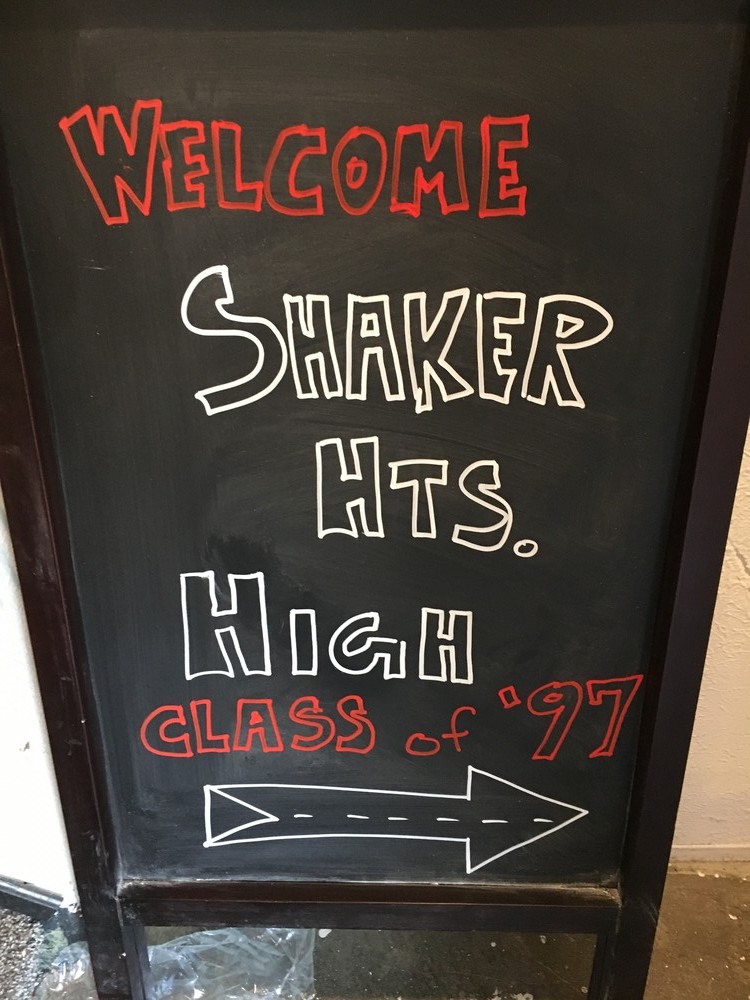 WELCOME
SHAKER
HTS.
HIGH
CLASS of '97